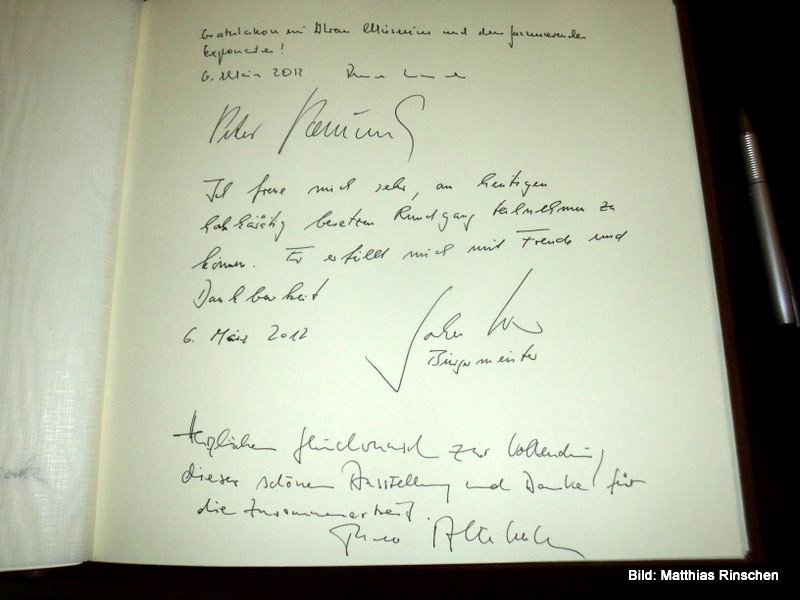 Gratulation zu Ihrem Museum und den faszinierenden
Exponaten!
6. März 2012
Peter
Ich freue mich sehr, am heutigen
hochkarätig besetzten Rundgang teilnehmen zu
können. Er erfüllt mich mit Freude und
Dankbarkeit
6. März 2012
Bürgermeister
Herzlichen Glückwunsch zur Vollendung
dieser schönen Ausstellung und Danke für
die Zusammenarbeit.
Bild: Matthias Rinschen